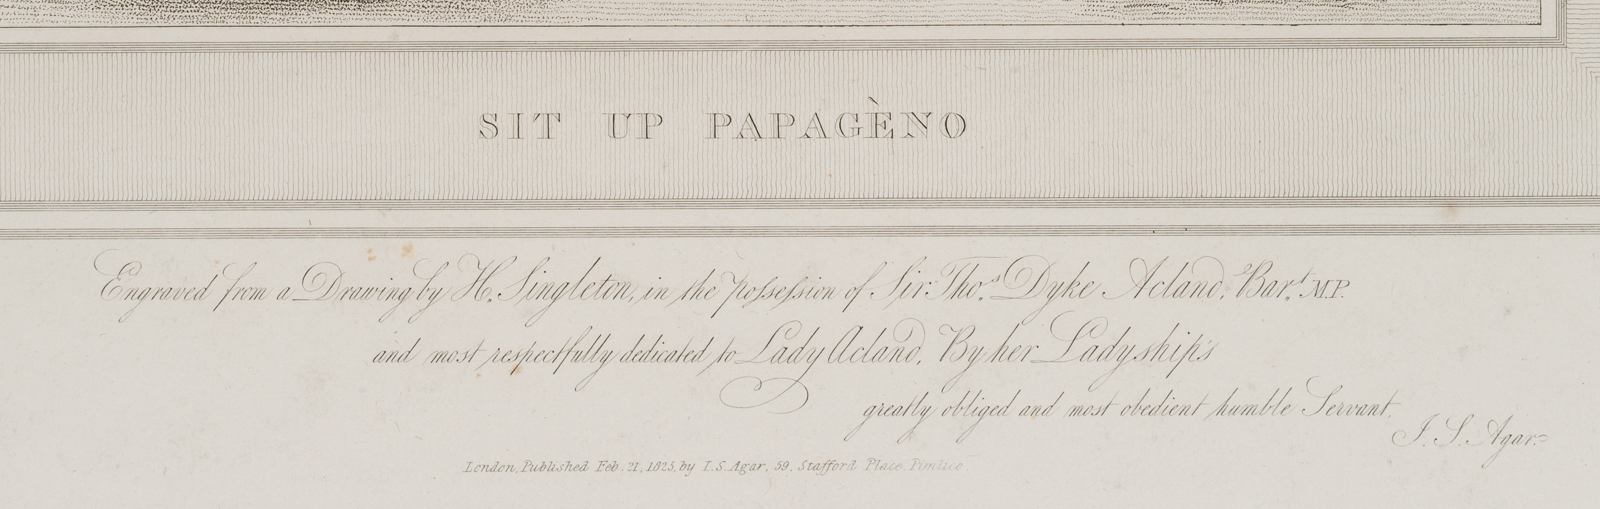 SIT UP PAPAGÈNO
Engraved from a Drawing by H. Singleton, in the possession of Sir Thos. Dyke Acland, Bart. M.P.
and most respectfully dedicated to Lady Acland, By her Ladyships
greatly obliged and most obedient humble Servant,
I. S. Agar
London, Published Feb. 21, 1825, by I. S. Agar, 59, Stafford Place, Pimlico